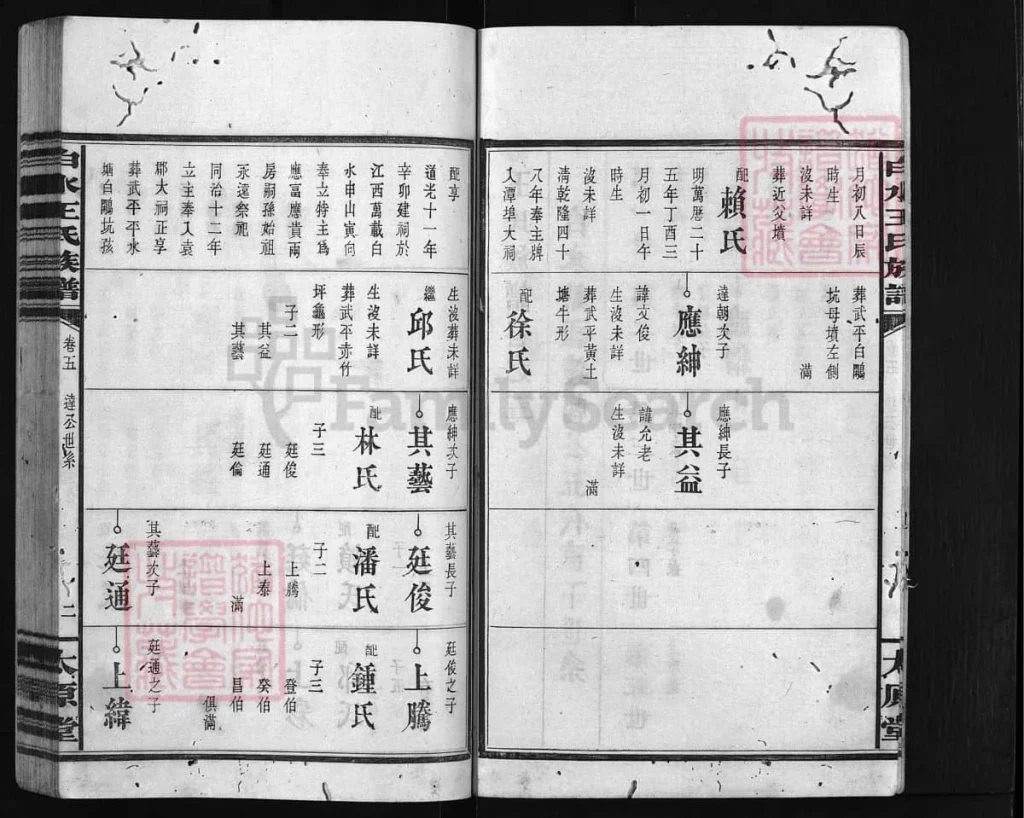 月初八日辰
時生
沒未詳
葬近父墳
配
賴氏
明萬曆二十
五年丁酉三
月初一日午
時生
沒未詳
清乾隆四十
八年奉主牌
入潭埠大祠
葬武平白鷴
坑母墳左側
滿
達朝次子
應紳
諱文俊
生沒未詳
葬武平黃土
塘牛形
配
徐氏
應紳長子
其益
諱允老
生沒未詳
滿
配享
道光十一年
辛卯建祠於
江西萬載白
水申山寅向
奉立特主為
應富應貴兩
房嗣孫始祖
永遠祭祀
同治十二年
立主奉入袁
郡大祠正享
葬武平平水
塘白鷴坑孩
生沒葬未詳
繼
邱氏
生沒未詳
葬武平赤竹
坪龜形
子二
其益
其藝
應紳次子
其藝
配
林氏
子三
廷俊
廷通
廷倫
其藝長子
廷俊
配
潘氏
子二
上騰
上泰
滿
其藝次子
廷通
廷俊之子
上騰
配
鍾氏
子三
登伯
癸伯
昌伯
俱滿
廷通之子
上緯
白水王氏族譜
卷五
達公世系
二
太原堂
白水王氏族譜
太原堂
FamilySearch